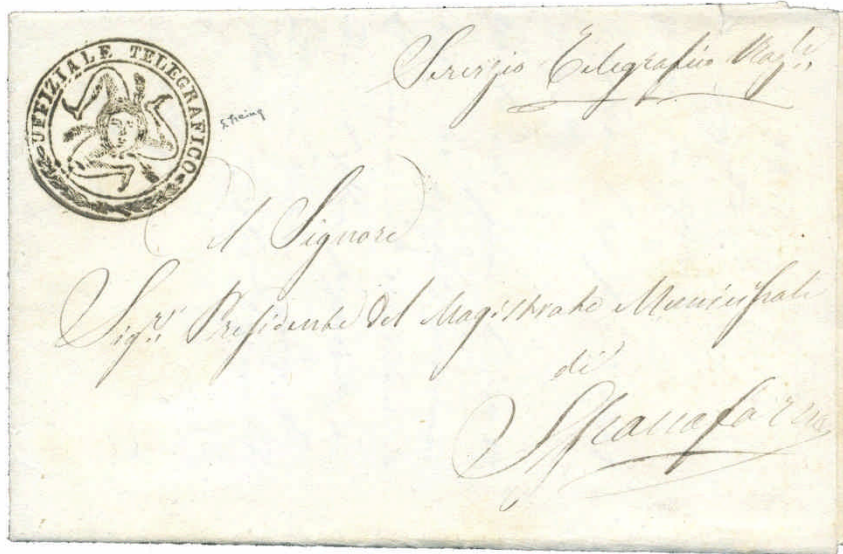 UFFIZIALE TELEGRAFICO
Servizio Telegrafico
Il Signore
Sig.r Presidente del Magistrato Municipale
di